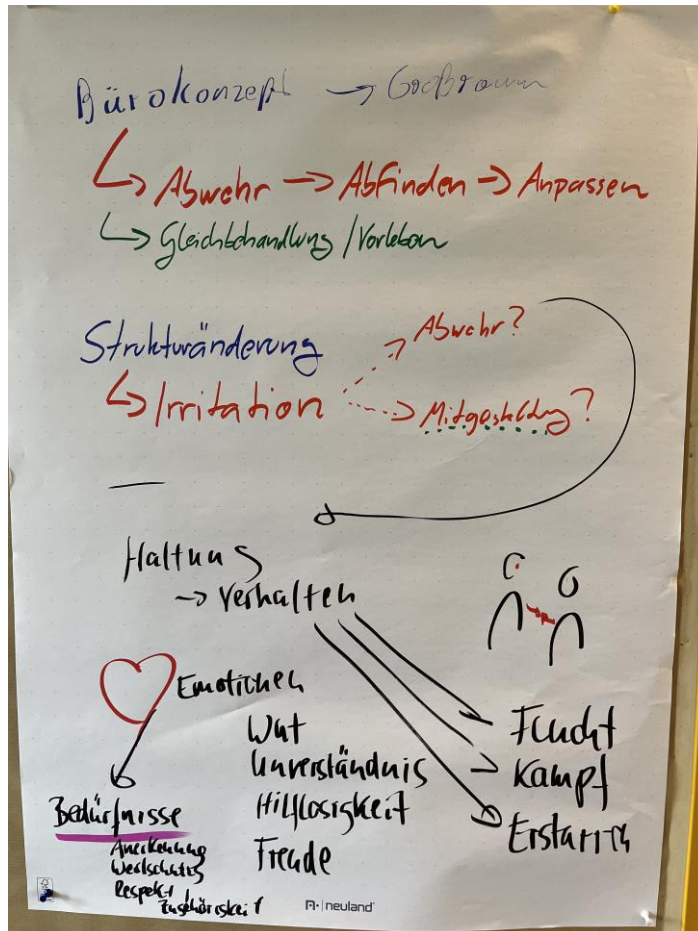 Bürokonzept → Großraum
↳ Abwehr → Abfinden → Anpassen
↳ Gleichbehandlung / Vorleben
Strukturänderung
Abwehr?
↳ Irritation
Mitgestaltung?
Haltung
→ Verhalten
Emotionen
Wut
Unverständnis
Hilflosigkeit
Freude
Flucht
Kampf
Erstarren
Bedürfnisse
Anerkennung
Wertschätzg
Respekt /
Zugehörigkeit
FSC
neuland